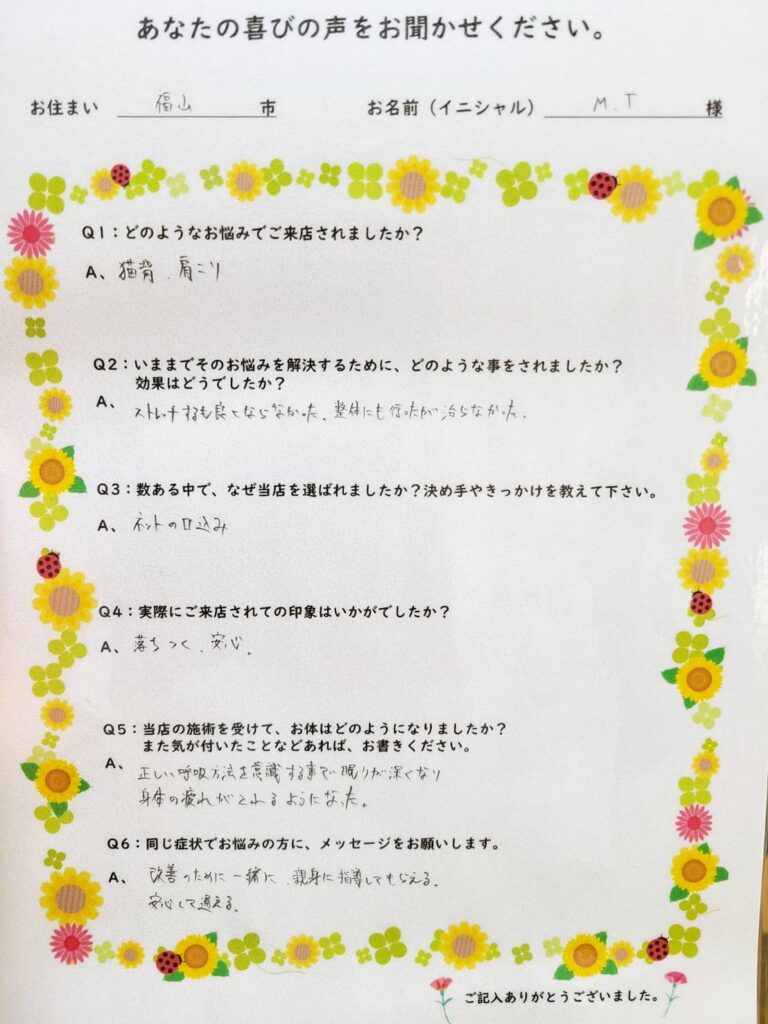 あなたの喜びの声をお聞かせください。
お住まい 福山 市 お名前(イニシャル) M.T 様
Q1:どのようなお悩みでご来店されましたか?
A、猫背、肩こり
Q2:いままでそのお悩みを解決するために、どのような事をされましたか?
効果はどうでしたか?
A、ストレッチするも良くならなかった、整体にも行ったが治らなかった。
Q3:数ある中で、なぜ当店を選ばれましたか?決め手やきっかけを教えて下さい。
A、ネットの口込み
Q4:実際にご来店されての印象はいかがでしたか?
A、落ちつく、安心。
Q5:当店の施術を受けて、お体はどのようになりましたか?
また気が付いたことなどあれば、お書きください。
A、正しい呼吸方法を意識する事で眠りが深くなり
身体の疲れがとれるようになった。
Q6:同じ症状でお悩みの方に、メッセージをお願いします。
A、改善のために一緒に、親身に指導してもらえる。
安心して通える。
ご記入ありがとうございました。